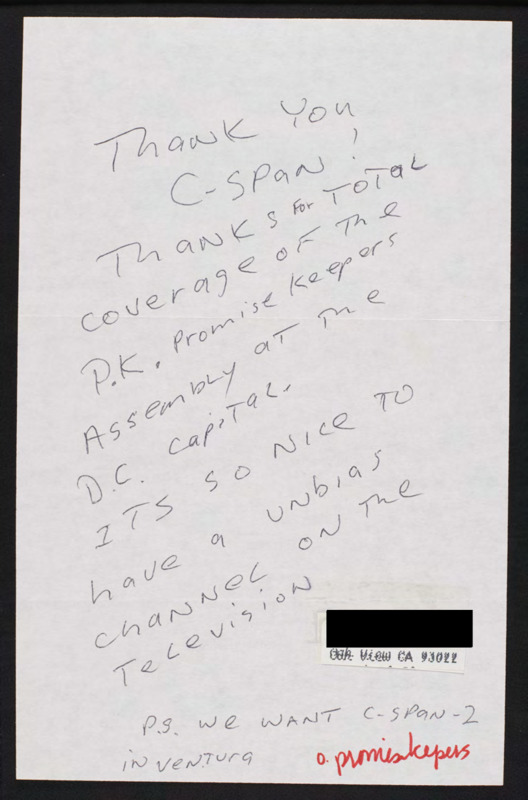 Thank You
C-SPAN!
Thanks For Total
coverage of the
P.K. Promise Keepers
Assembly at the
D.C. Capital.
Its so nice to
have a unbias
channel on the
Television
View CA 93022
P.S. We want C-SPAN-2
in Ventura
promisekepers